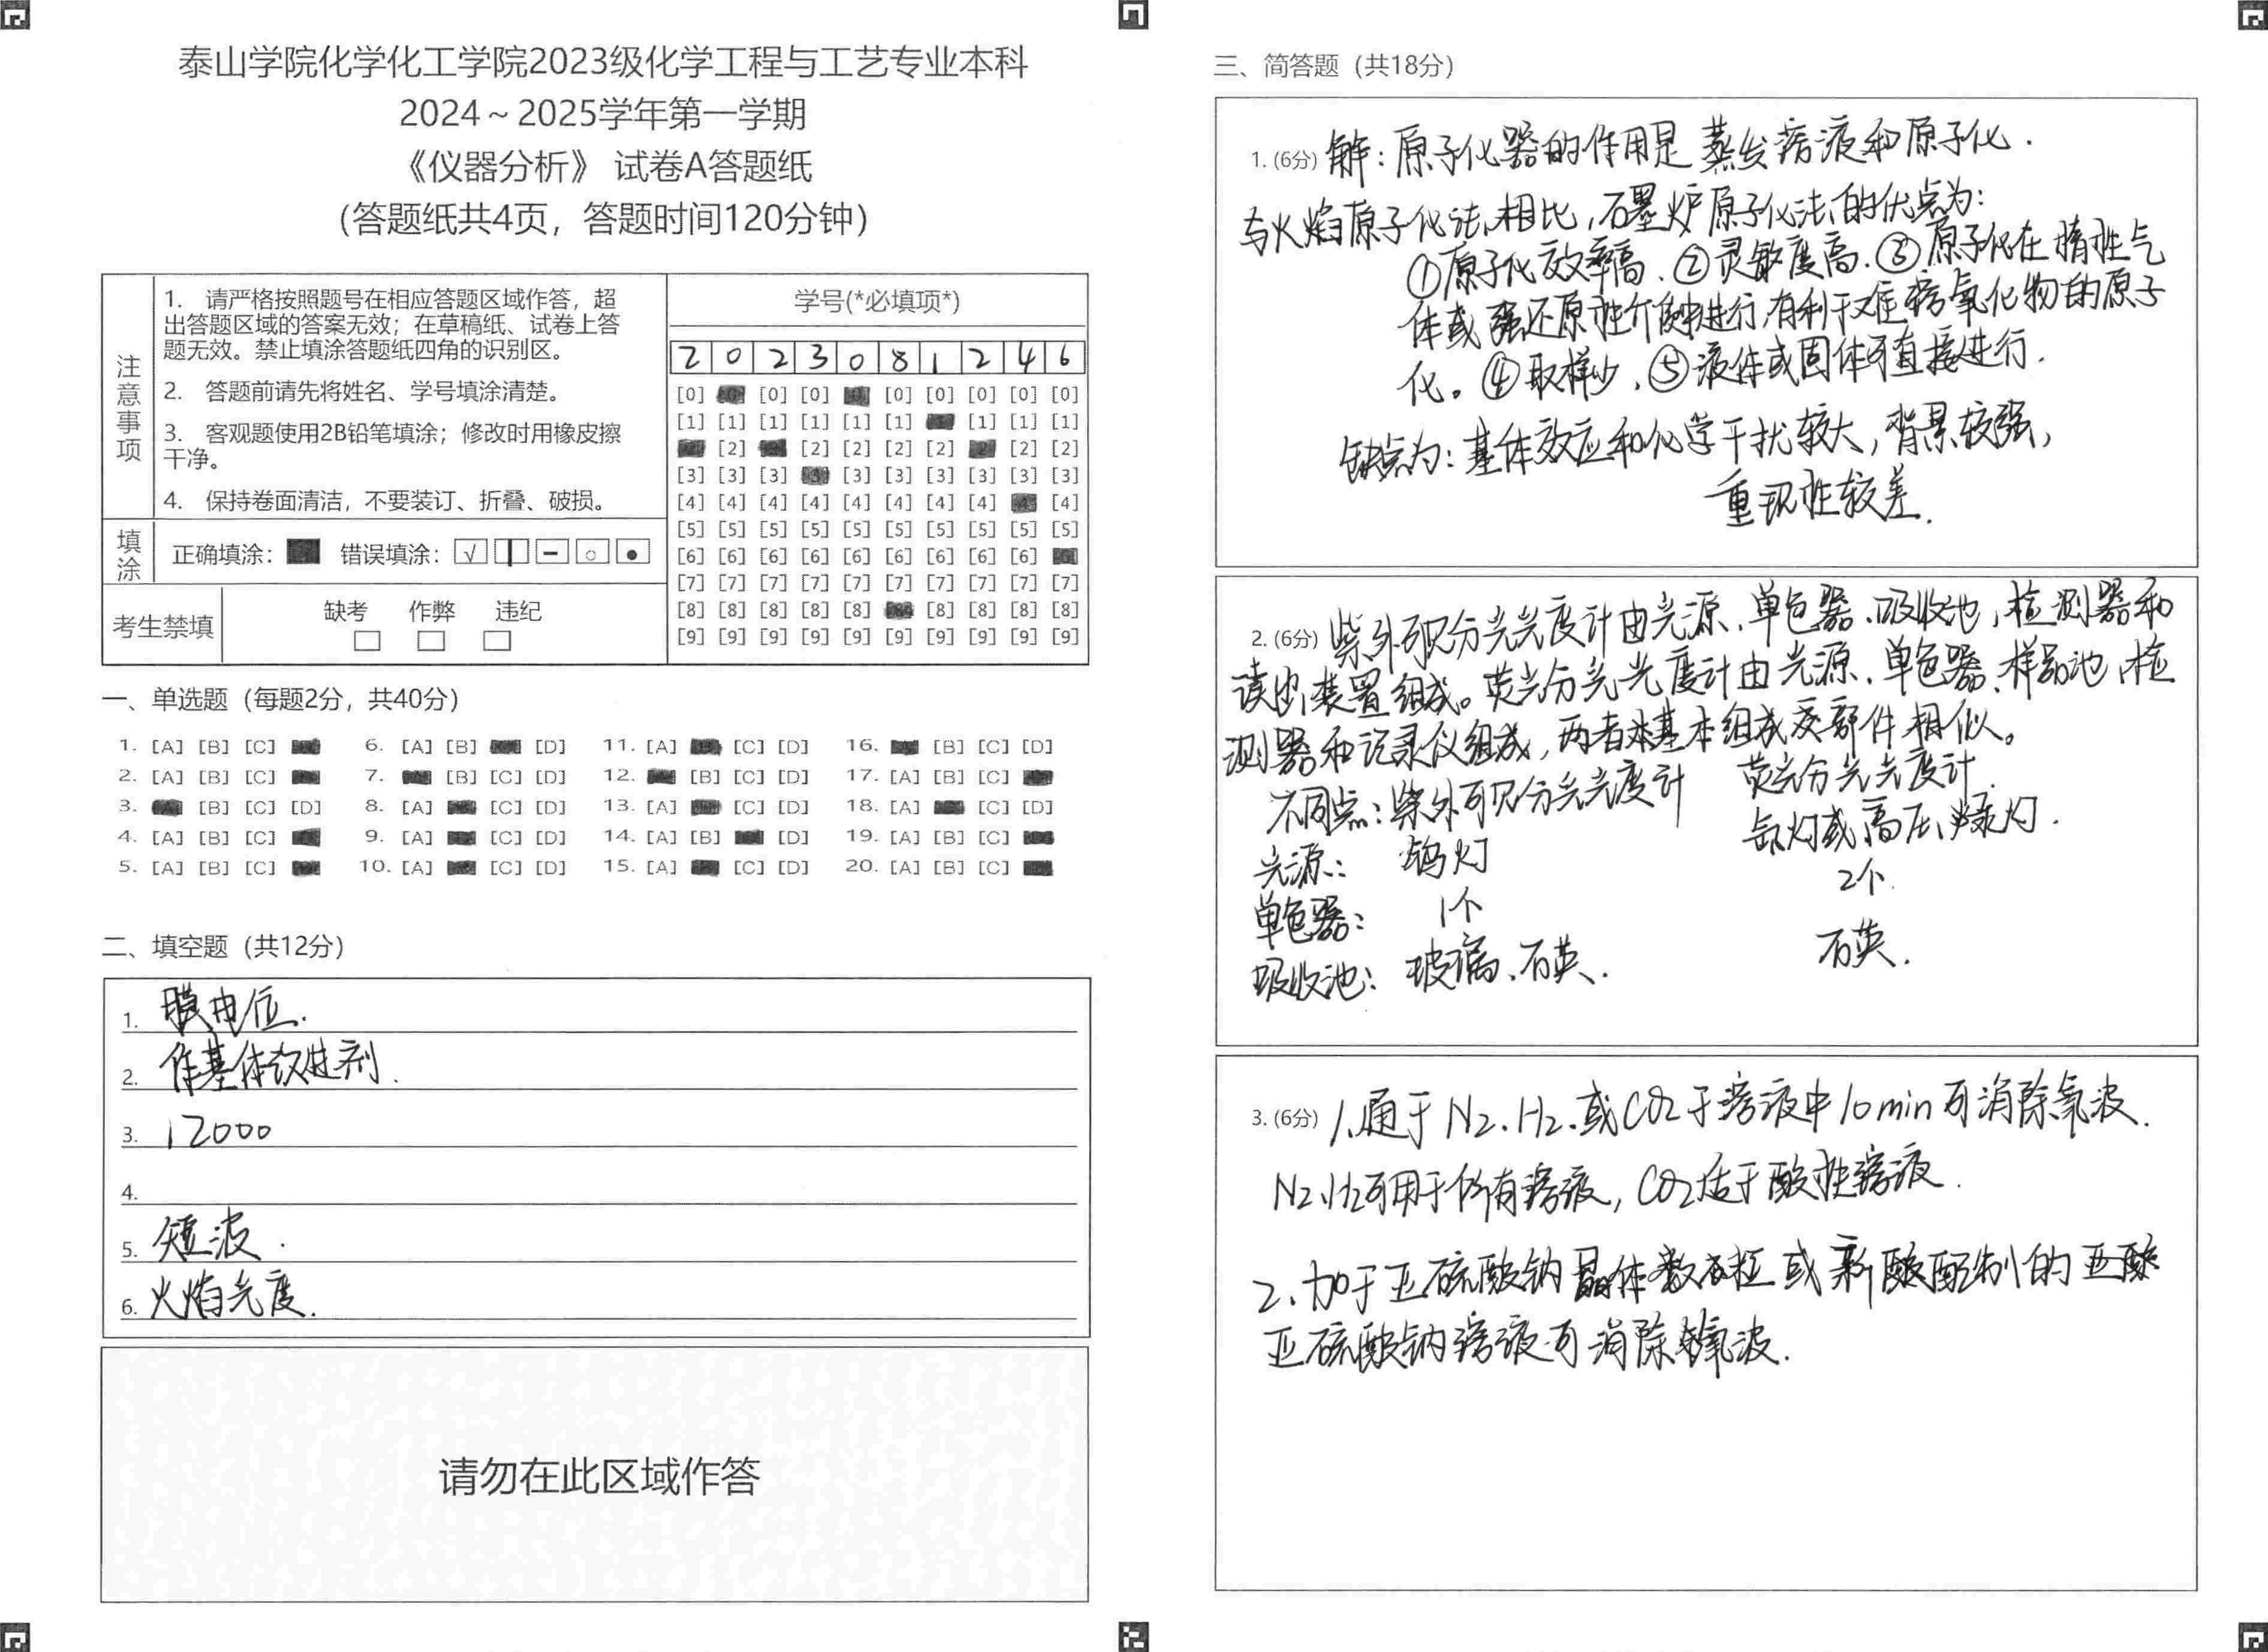 泰山学院化学化工学院2023级化学工程与工艺专业本科
2024~2025学年第一学期
《仪器分析》 试卷A答题纸
(答题纸共4页，答题时间120分钟)
注意事项
1. 请严格按照题号在相应答题区域作答，超
出答题区域的答案无效；在草稿纸、试卷上答
题无效。禁止填涂答题纸四角的识别区。
2. 答题前请先将姓名、学号填涂清楚。
3. 客观题使用2B铅笔填涂；修改时用橡皮擦
干净。
4. 保持卷面清洁，不要装订、折叠、破损。
填涂 正确填涂： 错误填涂： √
考生禁填 缺考 作弊 违纪
学号(*必填项*)
2 0 2 3 0 8 1 2 4 6
[0] [0] [0] [0] [0] [0] [0] [0]
[1] [1] [1] [1] [1] [1] [1] [1] [1]
[2] [2] [2] [2] [2] [2] [2]
[3] [3] [3] [3] [3] [3] [3] [3] [3] [3]
[4] [4] [4] [4] [4] [4] [4] [4] [4] [4]
[5] [5] [5] [5] [5] [5] [5] [5] [5] [5]
[6] [6] [6] [6] [6] [6] [6] [6] [6]
[7] [7] [7] [7] [7] [7] [7] [7] [7] [7]
[8] [8] [8] [8] [8] [8] [8] [8] [8]
[9] [9] [9] [9] [9] [9] [9] [9] [9] [9]
一、单选题（每题2分，共40分）
1. [A] [B] [C] 6. [A] [B] [D] 11. [A] [C] [D] 16. [B] [C] [D]
2. [A] [B] [C] 7. [B] [C] [D] 12. [B] [C] [D] 17. [A] [B] [C]
3. [B] [C] [D] 8. [A] [C] [D] 13. [A] [C] [D] 18. [A] [C] [D]
4. [A] [B] [C] 9. [A] [C] [D] 14. [A] [B] [D] 19. [A] [B] [C]
5. [A] [B] [C] 10. [A] [C] [D] 15. [A] [C] [D] 20. [A] [B] [C]
二、填空题（共12分）
1. 膜电位.
2. 作基体改进剂.
3. 12000
4.
5. 短波.
6. 火焰光度.
请勿在此区域作答
三、简答题（共18分）
1. (6分) 解：原子化器的作用是蒸发溶液和原子化.
与火焰原子化法相比，石墨炉原子化法的优点为：
①原子化效率高.②灵敏度高.③原子化在惰性气
体或强还原性介质中进行,有利于难溶氧化物的原子
化。④取样少、⑤液体或固体可直接进行.
缺点为：基体效应和化学干扰较大，背景较强，
重现性较差.
2. (6分) 紫外可见分光光度计由光源、单色器、吸收池，检测器和
读出装置组成。荧光分光光度计由光源、单色器、样品池、检
测器和记录仪组成，两者基本组成部件相似。
不同点：紫外可见分光光度计 荧光分光光度计.
光源： 钨灯 氙灯或高压汞灯.
单色器： 1个 2个.
吸收池： 玻璃、石英. 石英.
3. (6分) 1.通于N2、H2、或CO2于溶液中10min可消除氧波.
N2、H2可用于所有溶液，CO2适于酸性溶液.
2、加于亚硫酸钠晶体数粒或新配制的
亚硫酸钠溶液可消除氧波.